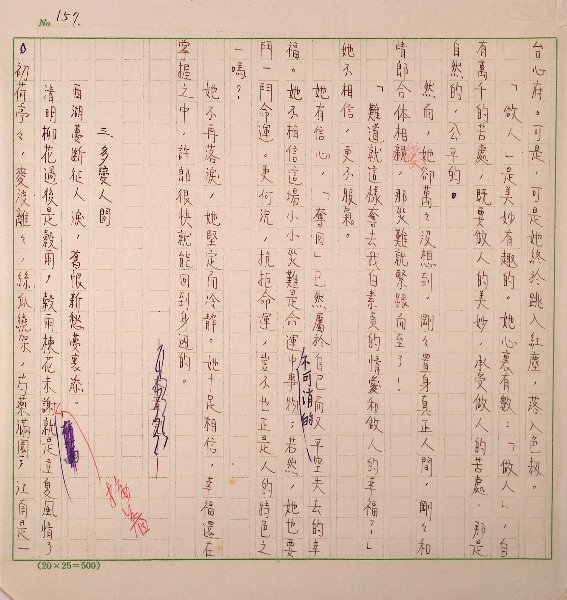 No. 157.
台心府。可是,可是她終於跳入紅塵,落入色殺。
「做人」是美妙有趣的。她心裏有數:「做人」,自
有萬千的苦處,既要做人的美妙,承受做人的苦處,那是
自然的,公平的。
然而,她卻萬々沒想到,剛々置身真正人間,剛々和
情郎合体相親,那災難就緊跟而至了!
「難道就這樣奪去我白素貞的情愛和做人的幸福?」
她不相信,更不服氣。
她有信心,「奪回」已然屬於自己而又平空失去的幸
福。她不相信這場小小災難是命運中不可消的事物;若然,她也要
鬥一鬥命運。更何況,抗拒命運,豈不也正是人的特色之
一嗎?
她不再落淚,她堅定而冷靜。她十足相信,幸福還在
掌握之中,許郎很快就能回到身邊的。
三、多變人間
西湖憂斷征人淚,舊恨新愁憂裏添
清明柳花過後是穀雨,穀雨楝花未謝就是立夏風情了
初荷亭々,麥波離々,絲瓜繞架,芍藥滿園;江南是一
(20×25=500)